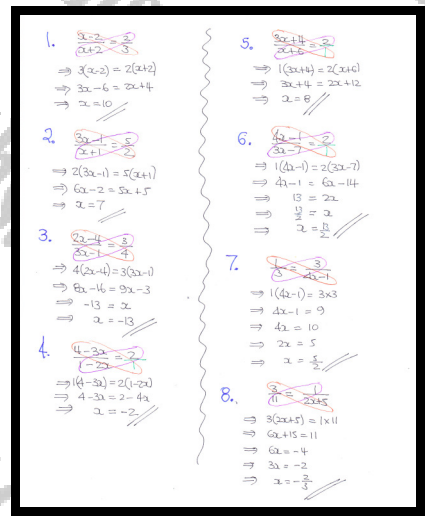 1. (x-2)/(x+2) = 2/3
⇒ 3(x-2) = 2(x+2)
⇒ 3x-6 = 2x+4
⇒ x=10
2. (3x-1)/(x+1) = 5/2
⇒ 2(3x-1) = 5(x+1)
⇒ 6x-2 = 5x+5
⇒ x=7
3. (2x-4)/(3x-1) = 3/4
⇒ 4(2x-4) = 3(3x-1)
⇒ 8x-16 = 9x-3
⇒ -13 = x
⇒ x = -13
4. (4-3x)/(1-2x) = 2/1
⇒ 1(4-3x) = 2(1-2x)
⇒ 4-3x = 2-4x
⇒ x = -2
5. (3x+4)/(x+6) = 2/1
⇒ 1(3x+4) = 2(x+6)
⇒ 3x+4 = 2x+12
⇒ x = 8
6. (4x-1)/(3x-7) = 2/1
⇒ 1(4x-1) = 2(3x-7)
⇒ 4x-1 = 6x-14
⇒ 13 = 2x
⇒ 13/2 = x
⇒ x = 13/2
7. 1/3 = 3/(4x-1)
⇒ 1(4x-1) = 3×3
⇒ 4x-1 = 9
⇒ 4x = 10
⇒ 2x = 5
⇒ x = 5/2
8. 3/11 = 1/(2x+5)
⇒ 3(2x+5) = 1×11
⇒ 6x+15 = 11
⇒ 6x = -4
⇒ 3x = -2
⇒ x = -2/3